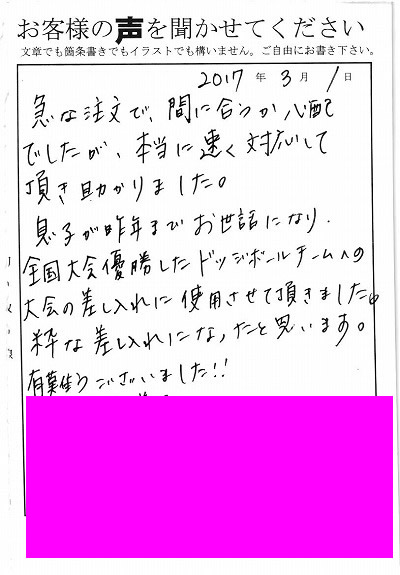 お客様の声を聞かせてください
文章でも箇条書きでもイラストでも構いません。ご自由にお書き下さい。
2017年 3月 1日
急な注文で、間に合うか心配
でしたが、本当に速く対応して
頂き助かりました。
息子が昨年までお世話になり、
全国大会優勝したドッジボールチームへの
大会の差し入れに使用させて頂きました。
粋な差し入れになったと思います。
有難うございました!!